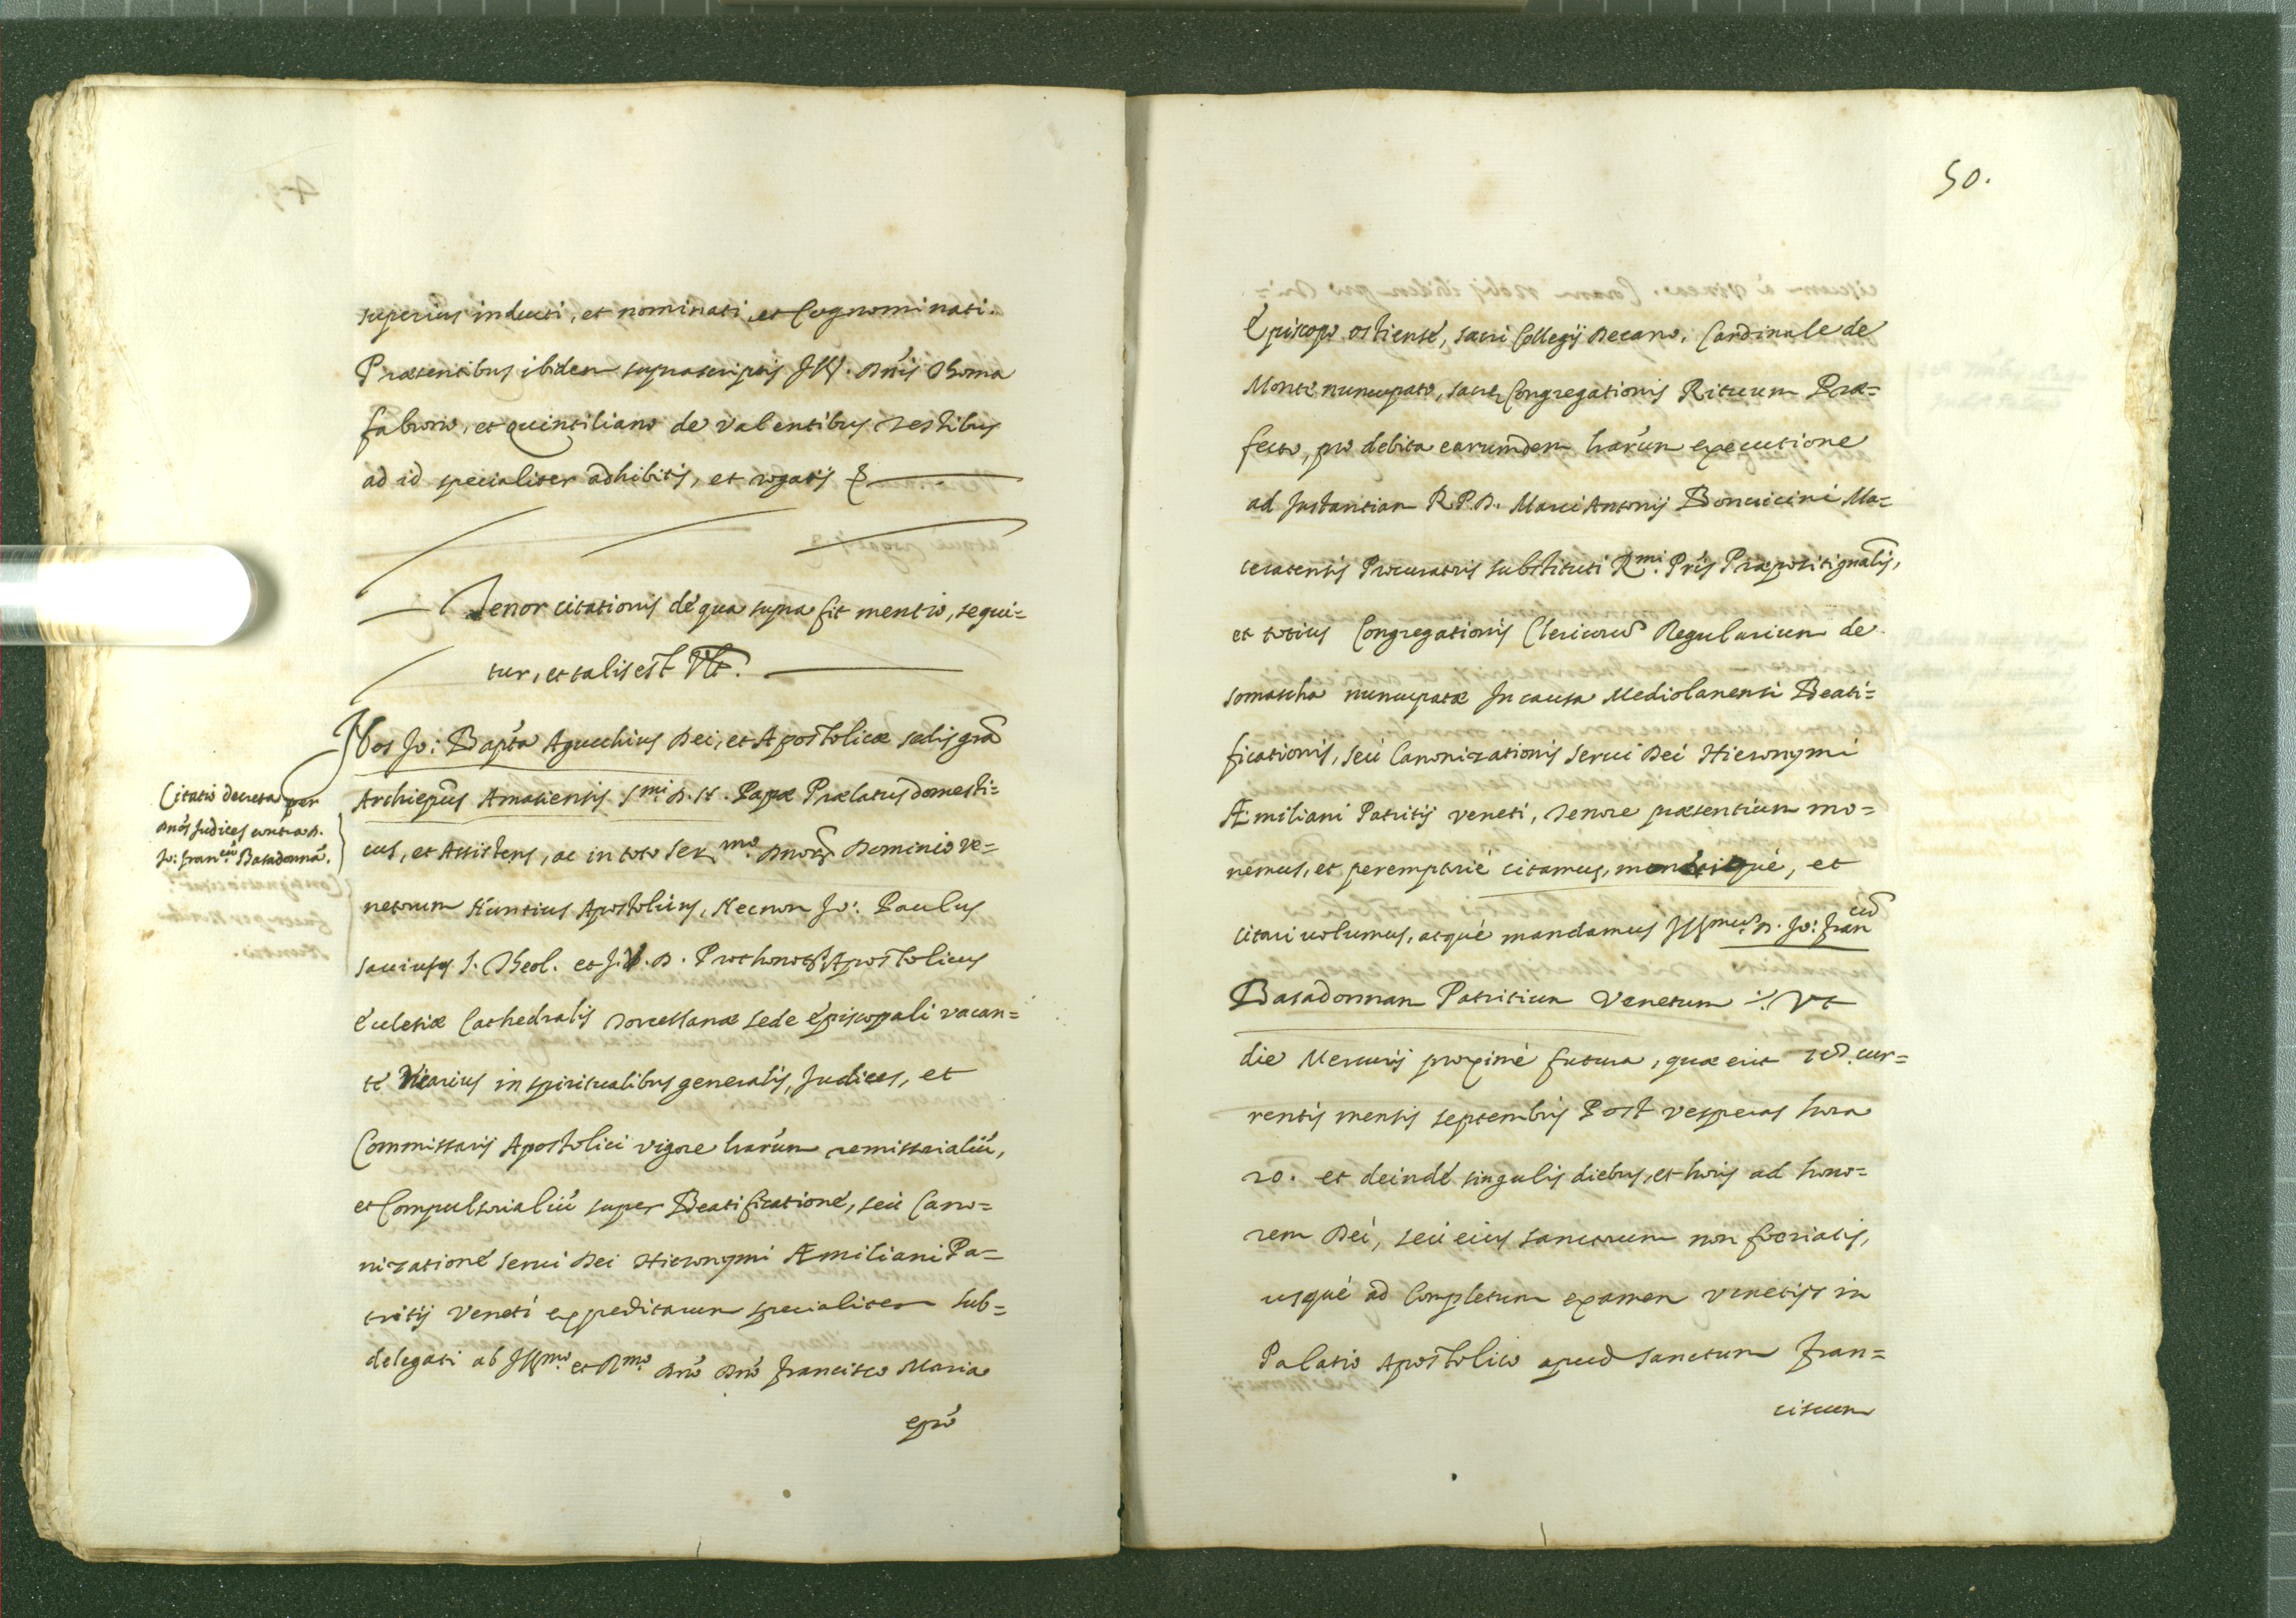 superius inducti, et nominati et Cognominati.
Præsentibus ibidem suprascriptis Ill. Dn̄is Thoma
fabrorio, et quintiliano de Valentibus Testibus
ad id specialiter adhibitis, et rogatis
Tenor citationis de qua supra fit mentio, sequi=
tur, et talis est Vlt.
Citatio decreta per
dnōs Judices contra D.
Jo: Fran.cū Basadonnā.
Nos Jo: Bapt̄a Agucchius Dei, et Apostolicæ sedis gr̄a
Archiep̄us Amasiensis S.mi D. N. Papæ Prælatus domesti=
cus, et Assistens, ac in toto Ser.mo Dnor̄ Dominio Ve=
netorum Nuntius Apostolicus, Necnon Jo: Paulus
Sauius S. Theol. et J. V. D. Prothonot. Apostolicus
Ecclesiæ Cathedralis Torcellanæ sede Episcopali vacan=
te Vicarius in spiritualibus generalis, Judices, et
Commissarij Apostolici vigore harūm remissorialiū,
et Compulsorialiū super Beatificatione, seu Cano=
nizatione serui Dei Hieronymi Æmiliani Pa=
tritij Veneti expeditarum specialiter sub=
delegati ab Ill.mo et R.mo Dn̄o Dn̄o Francisco Maria
ep̄o
50.
Episcopo Ostiense, sacri Collegij Decano, Cardinale de
Monte nuncupato, sacræ Congregationis Rituum Præ=
fecto, pro debita earumdem harūm executione
ad Instantiam R. P. D. Marci Antonij Boncicini Ma=
ceratensis Procuratoris substituti R.mi Pr̄is Præpositi gn̄alis,
et totius Congregationis Clericorū Regularium de
somascha nuncupatæ In causa Mediolanensi Beati=
ficationis, seu Canonizationis Serui Dei Hieronymi
Æmiliani Patritij veneti, Tenore præsentium mo=
nemus, et peremptorie citamus, monerique, et
citari uolumus, atque mandamus Ill.mum D. Jo: Fran.cū
Basadonnam Patritium Venetum Vt
die Mercurij proxime futura, quæ erit cur=
rentis mensis septembris Post vesperas hora
20. et deinde singulis diebus, et horis ad hono=
rem Dei, seu eius sanctorum non foeriatis,
usque ad Completum examen Venetijs in
Palatio Apostolico apud sanctum Fran=
ciscum